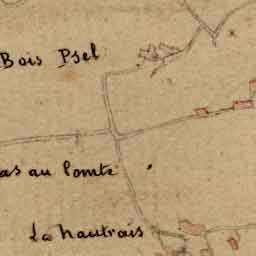 Bois Psel
as au Comte
La hautrais